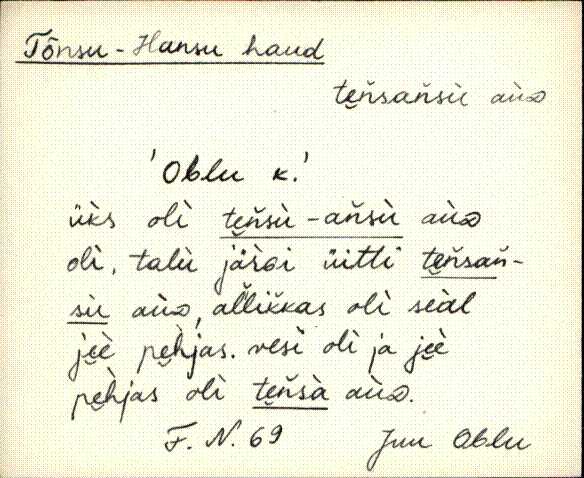 Tõnsu-Hansu haud
te̮ňsaňsù aùᴅ
'Oblu k.'
üks olì te̮ňsù-aňsù aùᴅ
olì, talù järɢi üitti te̮ňsaň-
sù aùᴅ, all̆ik̆kas olì seàl
je̮è pe̮hjas. vesì olì ja je̮è
pe̮hjas olì te̮ňsà aùᴅ.
F. N. 69 Juu Oblu